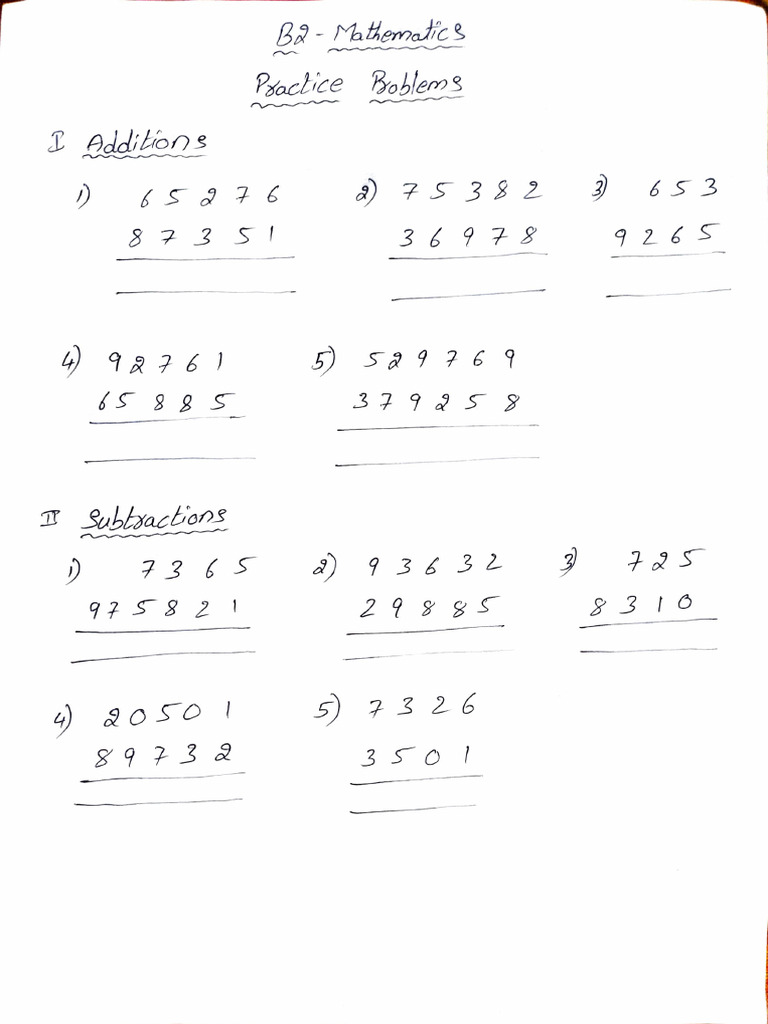 B2 - Mathematics
Practice Problems
I Additions
1) 65276 2) 75382 3) 653
87351 36978 9265
4) 92761 5) 529769
65885 379258
II Subtractions
1) 7365 2) 93632 3) 725
975821 29885 8310
4) 20501 5) 7326
89732 3501